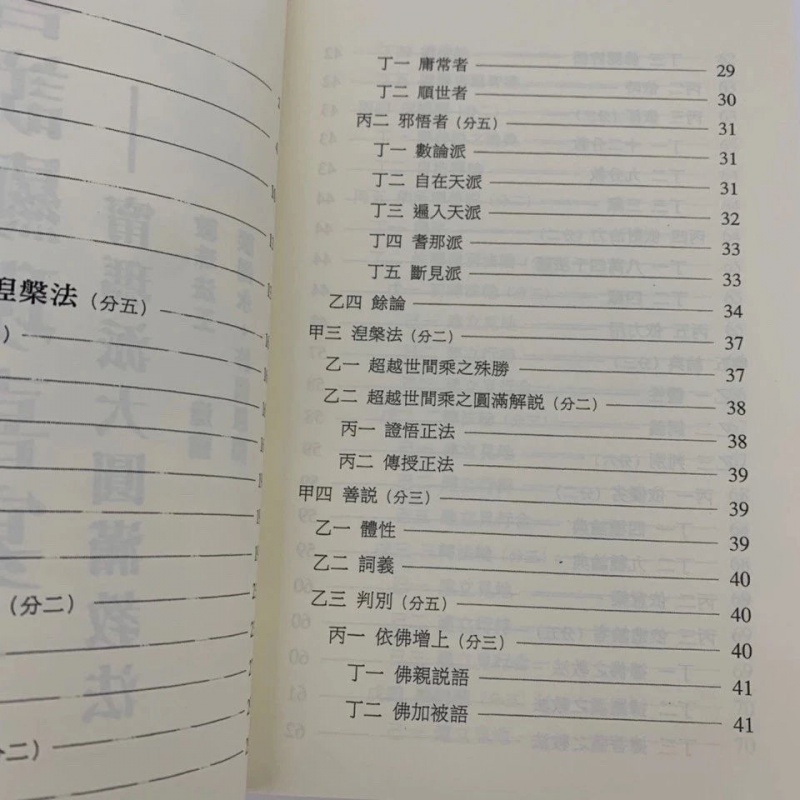 涅槃法（分五）
）
（分二）
分二）
丁一 庸常者 29
丁二 順世者 30
丙二 邪悟者（分五） 31
丁一 數論派 31
丁二 自在天派 31
丁三 遍入天派 32
丁四 耆那派 33
丁五 斷見派 33
乙四 餘論 34
甲三 涅槃法（分二） 37
乙一 超越世間乘之殊勝 37
乙二 超越世間乘之圓滿解説（分二） 38
丙一 證悟正法 38
丙二 傳授正法 39
甲四 善説（分三） 39
乙一 體性 39
乙二 詞義 40
乙三 判別（分五） 40
丙一 依佛增上（分三） 40
丁一 佛親説語 41
丁二 佛加被語 41